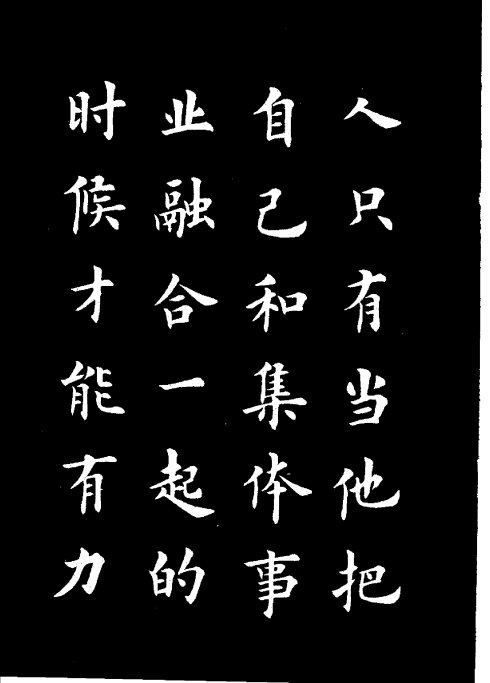 人只有当他把
自己和集体事
业融合一起的
时候才能有力